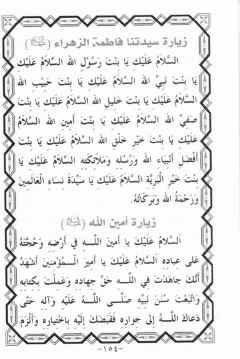 زيارة سيدتنا فاطمة الزهراء
السَّلامُ عَلَيْكِ يا بِنْتَ رَسُولِ اللهِ السَّلامُ عَلَيْكِ
يا بِنْتَ نَبِيِّ اللهِ السَّلامُ عَلَيْكِ يا بِنْتَ حَبِيبِ اللهِ
السَّلامُ عَلَيْكِ يا بِنْتَ خَلِيلِ اللهِ السَّلامُ عَلَيْكِ يا بِنْتَ
صَفِيِّ اللهِ السَّلامُ عَلَيْكِ يا بِنْتَ أَمِينِ اللهِ السَّلامُ
عَلَيْكِ يا بِنْتَ خَيْرِ خَلْقِ اللهِ السَّلامُ عَلَيْكِ يا بِنْتَ
أَفْضَلِ أَنْبِياءِ اللهِ وَرُسُلِهِ وَمَلائِكَتِهِ السَّلامُ عَلَيْكِ يا
بِنْتَ خَيْرِ الْبَرِيَّةِ السَّلامُ عَلَيْكِ يا سَيِّدَةَ نِساءِ الْعالَمِينَ
وَرَحْمَةُ اللهِ وَبَرَكاتُهُ.
زيارة أمين الله
السَّلامُ عَلَيْكَ يا أَمِينَ اللهِ فِي أَرْضِهِ وَحُجَّتَهُ
عَلى عِبادِهِ السَّلامُ عَلَيْكَ يا أَمِيرَ الْمُؤْمِنِينَ أَشْهَدُ
أَنَّكَ جاهَدْتَ فِي اللهِ حَقَّ جِهادِهِ وَعَمِلْتَ بِكِتابِهِ
وَاتَّبَعْتَ سُنَنَ نَبِيِّهِ صَلَّى اللهُ عَلَيْهِ وَآلِهِ حَتّى
دَعاكَ اللهُ إِلى جِوارِهِ فَقَبَضَكَ إِلَيْهِ بِاخْتِيارِهِ وَأَلْزَمَ
-١٥٤-